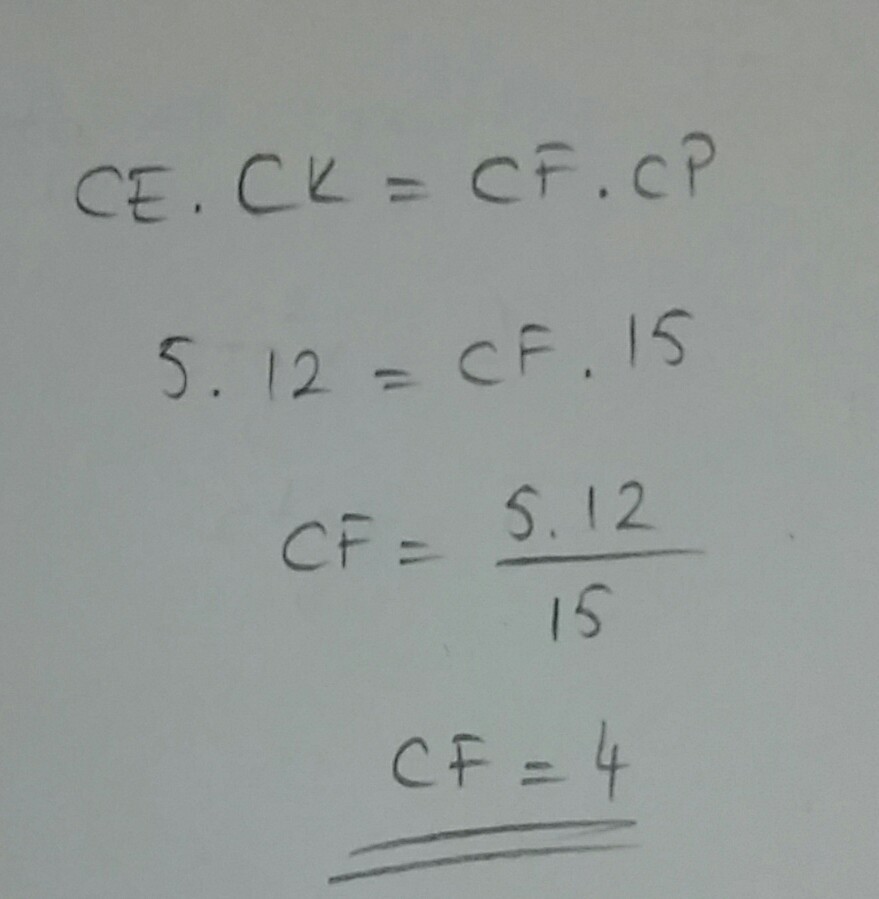 CE . CK = CF . CP
5 . 12 = CF . 15
CF = 5 . 12 / 15
CF = 4